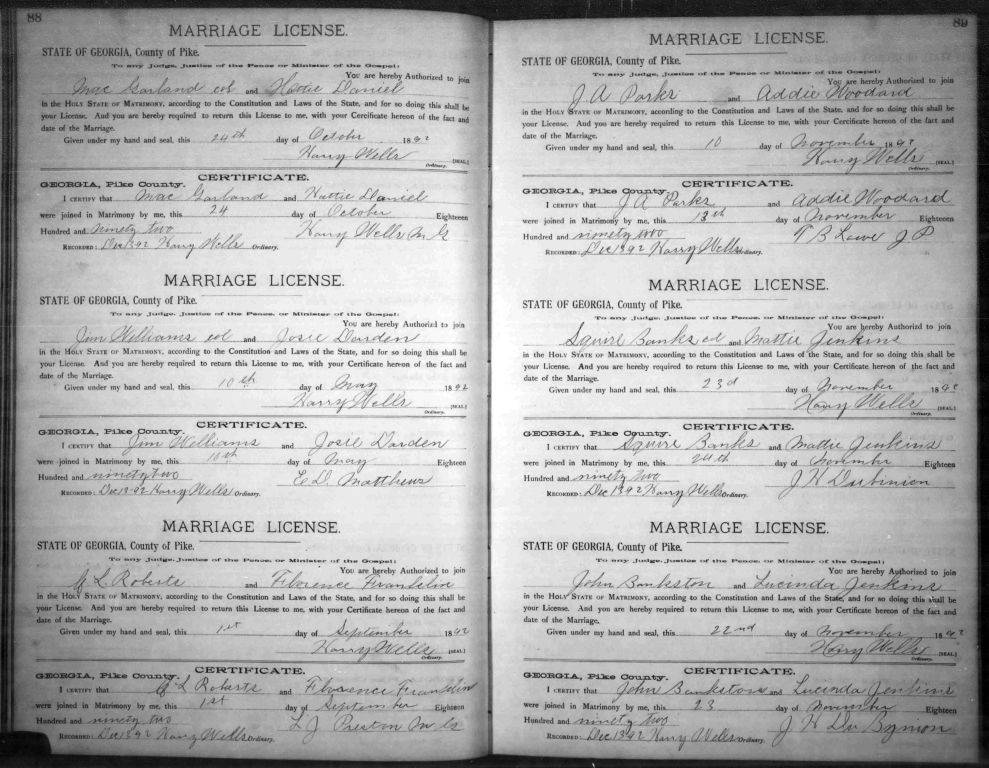 88
MARRIAGE LICENSE.
STATE OF GEORGIA, County of Pike.
To any Judge, Justice of the Peace or Minister of the Gospel:
You are hereby Authorized to join
Mac Garland col and Hattie Daniel
in the HOLY STATE OF MATRIMONY, according to the Constitution and Laws of the State, and for so doing this shall be
your License. And you are hereby required to return this License to me, with your Certificate hereon of the fact and
date of the Marriage.
Given under my hand and seal, this 24th day of October 1892
Harry Wells [SEAL]
Ordinary.
CERTIFICATE.
GEORGIA, Pike County.
I CERTIFY that Mac Garland and Hattie Daniel
were joined in Matrimony by me, this 24 day of October Eighteen
Hundred and ninety two Harry Wells M G
RECORDED: Dec 13 92 Harry Wells Ordinary.
MARRIAGE LICENSE.
STATE OF GEORGIA, County of Pike.
To any Judge, Justice of the Peace or Minister of the Gospel:
You are hereby Authorized to join
Jim Williams col and Josie Darden
in the HOLY STATE OF MATRIMONY, according to the Constitution and Laws of the State, and for so doing this shall be
your License. And you are hereby required to return this License to me, with your Certificate hereon of the fact and
date of the Marriage.
Given under my hand and seal, this 10th day of May 1892
Harry Wells [SEAL]
Ordinary.
CERTIFICATE.
GEORGIA, Pike County.
I CERTIFY that Jim Williams and Josie Darden
were joined in Matrimony by me, this 10th day of May Eighteen
Hundred and ninety two E D Matthews
RECORDED: Dec 13 92 Harry Wells Ordinary.
MARRIAGE LICENSE.
STATE OF GEORGIA, County of Pike.
To any Judge, Justice of the Peace or Minister of the Gospel:
You are hereby Authorized to join
L Roberts and Florence Franklin
in the HOLY STATE OF MATRIMONY, according to the Constitution and Laws of the State, and for so doing this shall be
your License. And you are hereby required to return this License to me, with your Certificate hereon of the fact and
date of the Marriage.
Given under my hand and seal, this 1st day of September 1892
Harry Wells [SEAL]
Ordinary.
CERTIFICATE.
GEORGIA, Pike County.
I CERTIFY that L Roberts and Florence Franklin
were joined in Matrimony by me, this 1st day of September Eighteen
Hundred and ninety two L J Preston M G
RECORDED: Dec 13 92 Harry Wells Ordinary.
89
MARRIAGE LICENSE.
STATE OF GEORGIA, County of Pike.
To any Judge, Justice of the Peace or Minister of the Gospel:
You are hereby Authorized to join
J A Parks and Addie Woodard
in the HOLY STATE OF MATRIMONY, according to the Constitution and Laws of the State, and for so doing this shall be
your License. And you are hereby required to return this License to me, with your Certificate hereon of the fact and
date of the Marriage.
Given under my hand and seal, this 10 day of November 1892
Harry Wells [SEAL]
Ordinary.
CERTIFICATE.
GEORGIA, Pike County.
I CERTIFY that J A Parks and Addie Woodard
were joined in Matrimony by me, this 13th day of November Eighteen
Hundred and ninety two T B Lowe J P
RECORDED: Dec 13 92 Harry Wells Ordinary.
MARRIAGE LICENSE.
STATE OF GEORGIA, County of Pike.
To any Judge, Justice of the Peace, or Minister of the Gospel:
You are hereby Authorized to join
Squire Banks col and Mattie Jenkins
in the HOLY STATE OF MATRIMONY, according to the Constitution and Laws of the State, and for so doing this shall be
your License. And you are hereby required to return this License to me, with your Certificate hereon of the fact and
date of the Marriage.
Given under my hand and seal, this 23d day of November 1892
Harry Wells [SEAL]
Ordinary.
CERTIFICATE.
GEORGIA, Pike County.
I CERTIFY that Squire Banks and Mattie Jenkins
were joined in Matrimony by me, this 24th day of November Eighteen
Hundred and ninety two J H
RECORDED: Dec 13 92 Harry Wells Ordinary.
MARRIAGE LICENSE.
STATE OF GEORGIA, County of Pike.
To any Judge, Justice of the Peace or Minister of the Gospel:
You are hereby Authorized to join
John Bankston and Lucinda Jenkins
in the HOLY STATE OF MATRIMONY, according to the Constitution and Laws of the State, and for so doing this shall be
your License. And you are hereby required to return this License to me, with your Certificate hereon of the fact and
date of the Marriage.
Given under my hand and seal, this 22nd day of November 1892
Harry Wells [SEAL]
Ordinary.
CERTIFICATE.
GEORGIA, Pike County.
I CERTIFY that John Bankston and Lucinda Jenkins
were joined in Matrimony by me, this 23 day of November Eighteen
Hundred and ninety two J H
RECORDED: Dec 13 92 Harry Wells Ordinary.